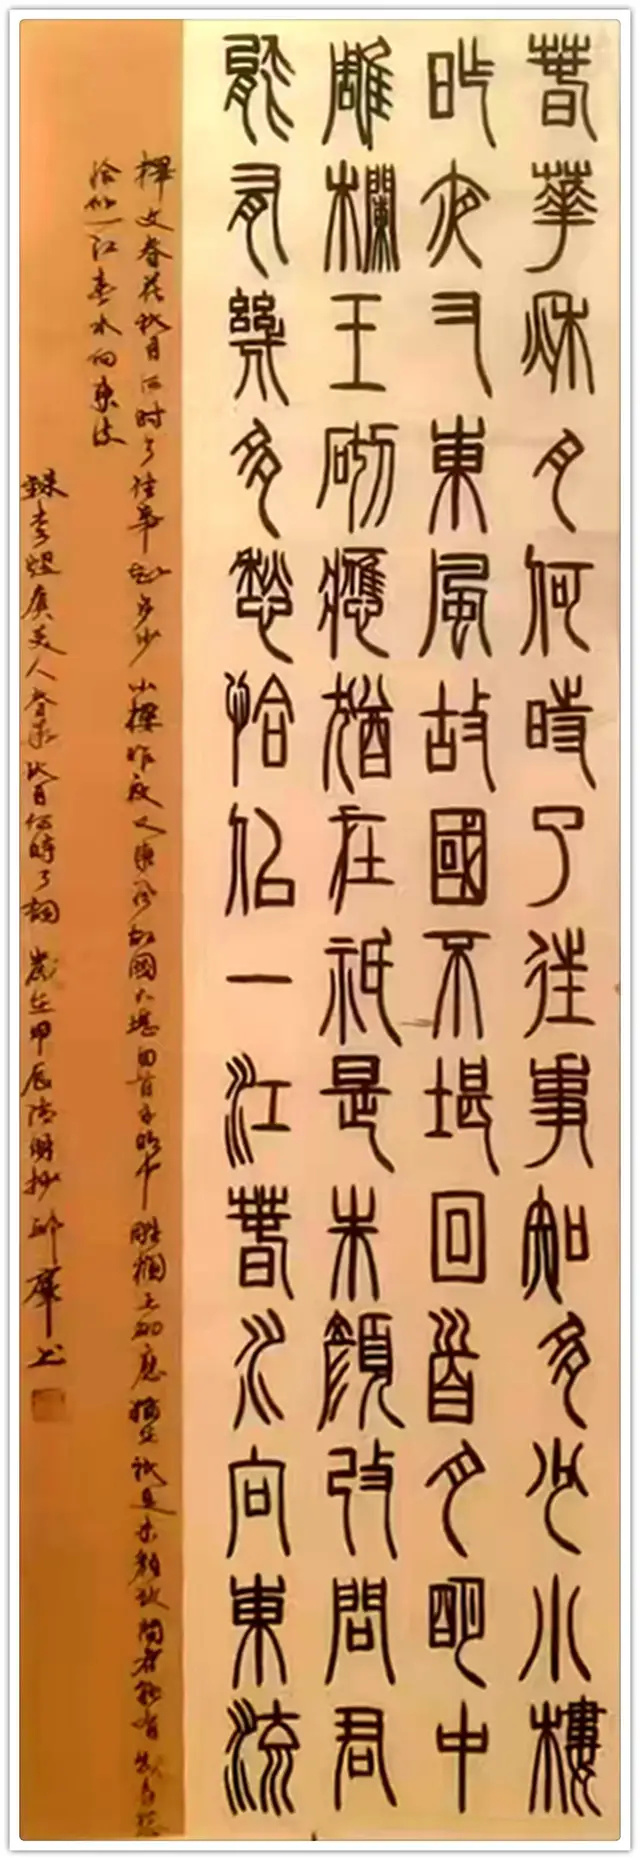 春華秋月何時了往事知多少小樓
昨夜又東風故國不堪回首月朙中
雕欄玉砌應猶在祇是朱顏改問君
能有幾多愁恰似一江春水向東流
釋文春花秋月何時了往事知多少小樓昨夜又東風故國不堪回首月明中雕欄玉砌應猶在祇是朱顏改問君能有幾多愁
恰似一江春水向東流
錄李煜虞美人春花秋月何時了詞歲在甲辰清明抄